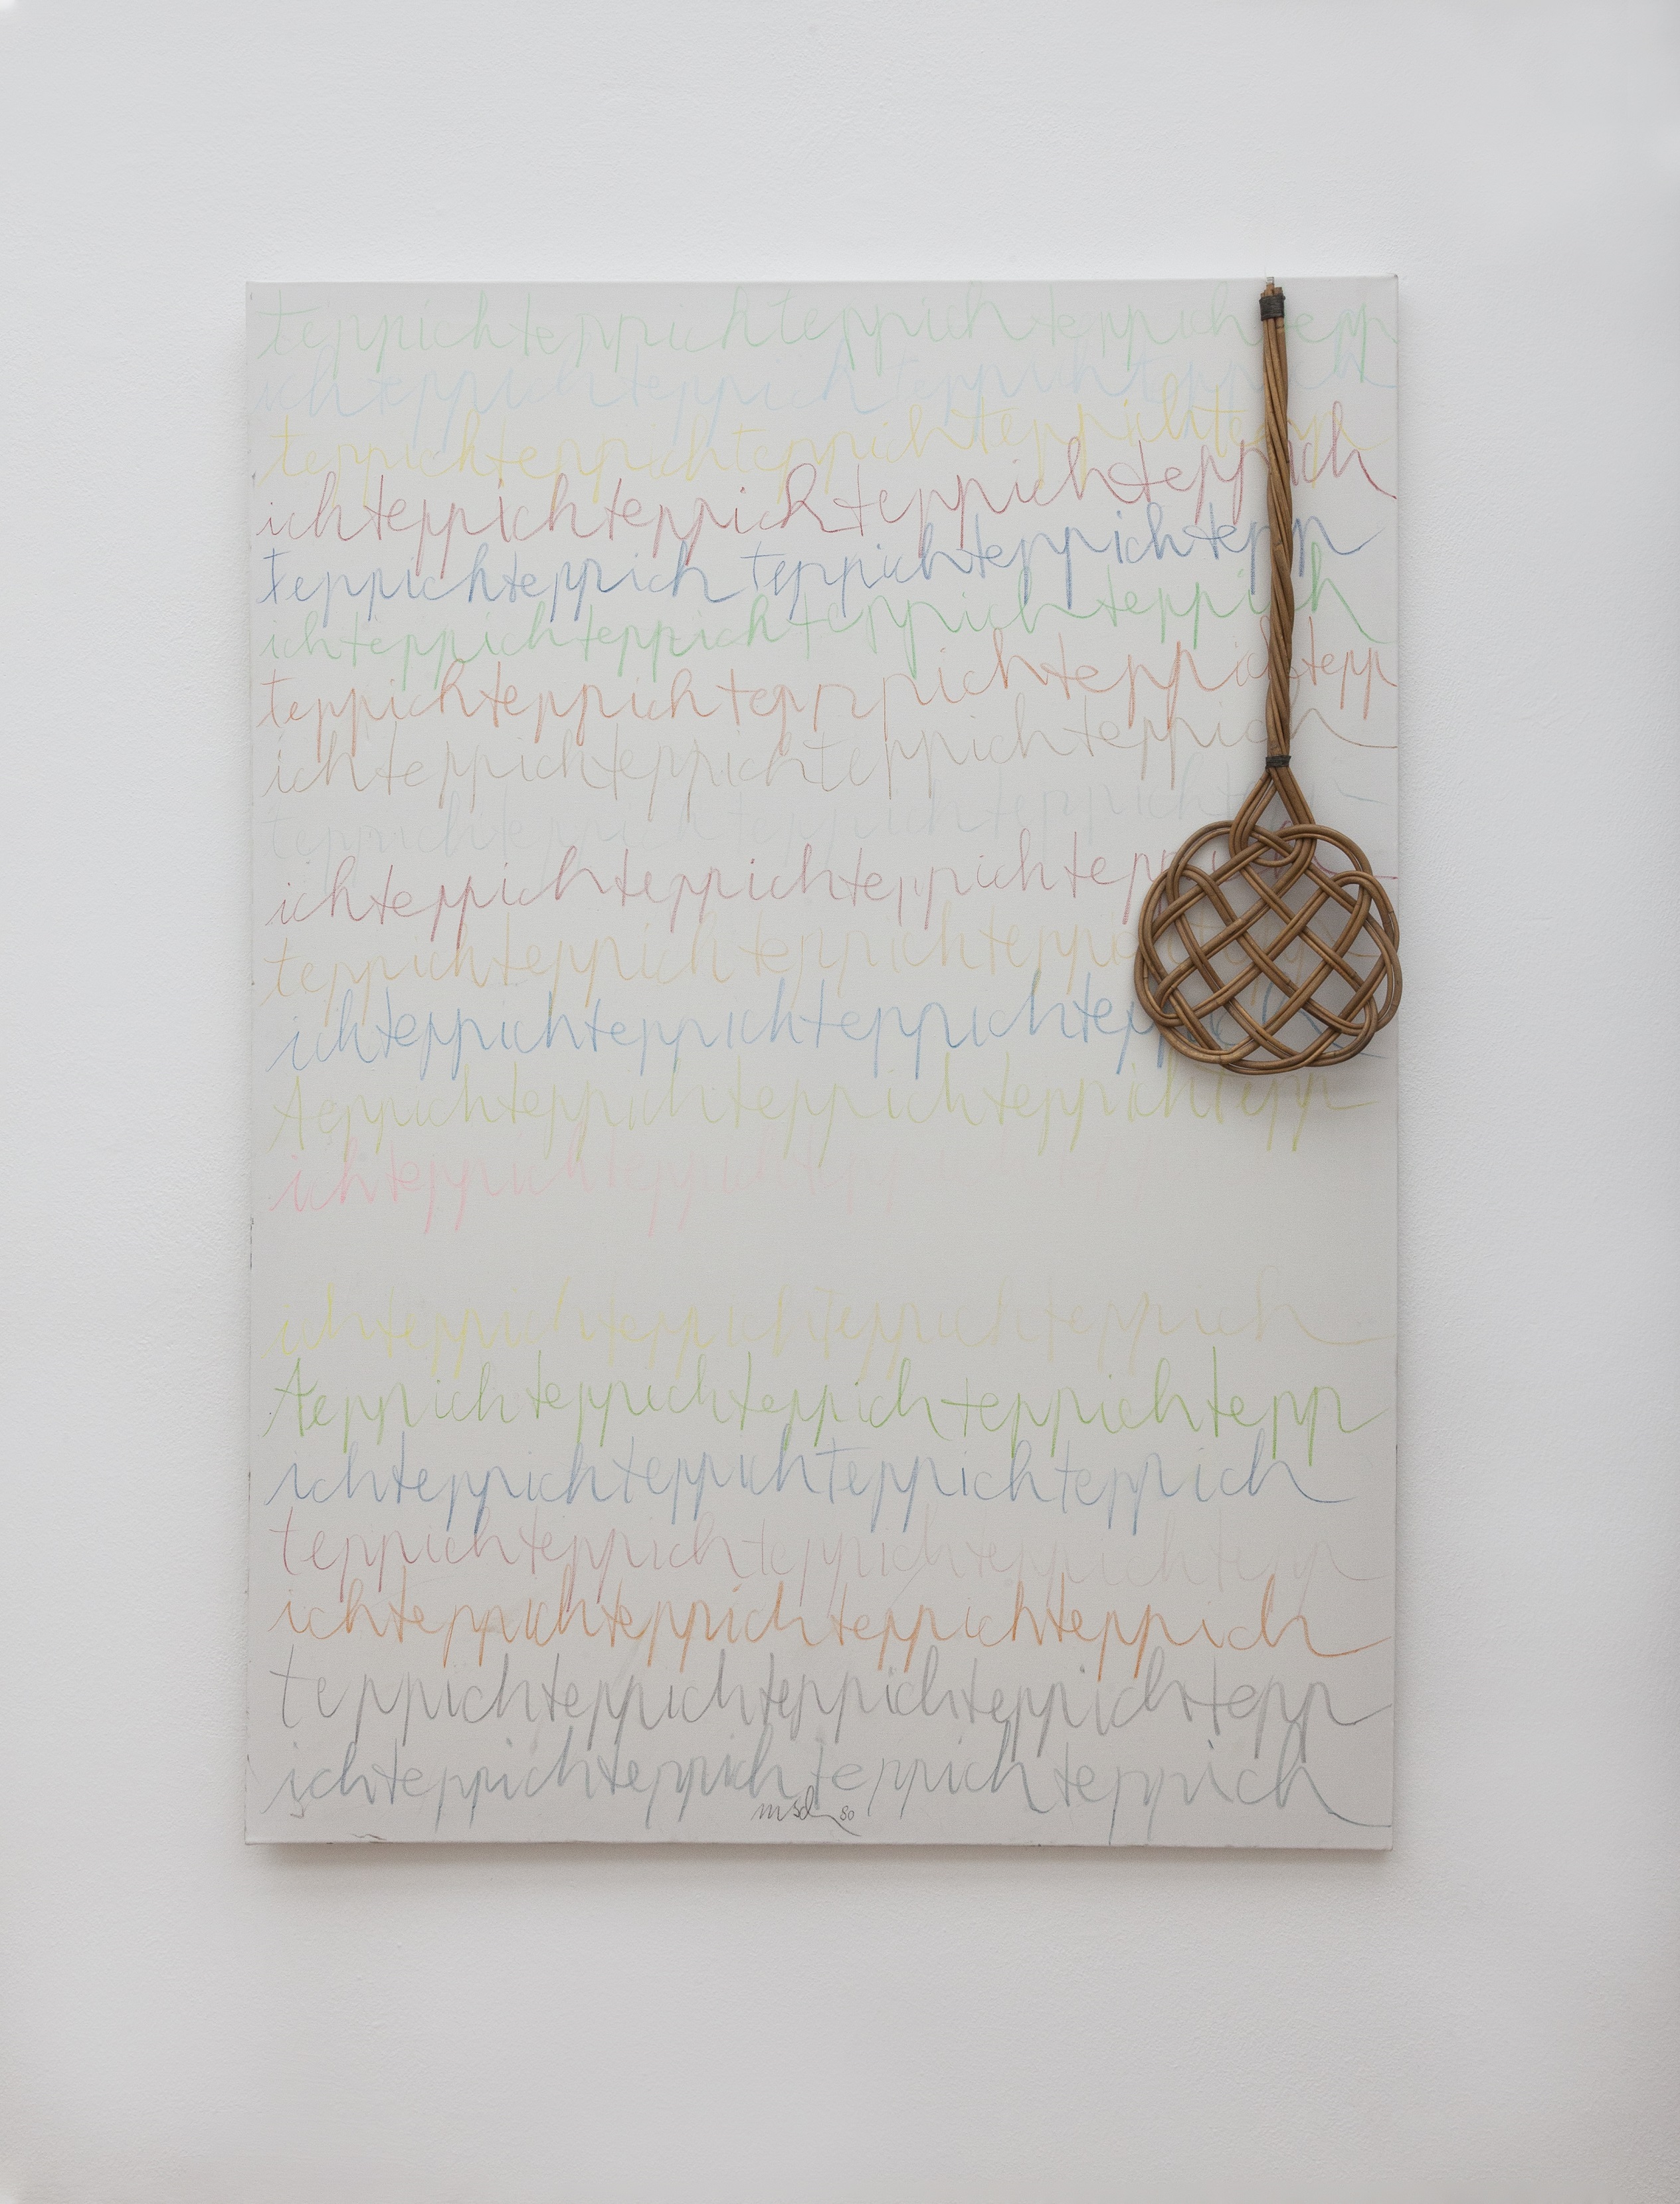 teppichteppichteppichteppichtepp
ichteppichteppichteppichteppich
teppichteppichteppichteppichtepp
ichteppichteppichteppichteppich
teppichteppich teppichteppichtepp
ichteppichteppichteppichteppich
teppichteppichteppichteppichtepp
ichteppichteppichteppichteppich
teppichteppichteppichteppich
ichteppichteppichteppichtepp
teppichteppichteppichteppi
ichteppichteppichteppichteppich
teppichteppichteppichteppichtepp
ichteppichteppichtepp
ichteppichteppichteppichteppich
teppichteppichteppichteppichtepp
ichteppichteppichteppichteppich
teppichteppichteppichteppichtepp
ichteppichteppichteppichteppich
teppichteppichteppichteppichtepp
ichteppichteppichteppichteppich
80